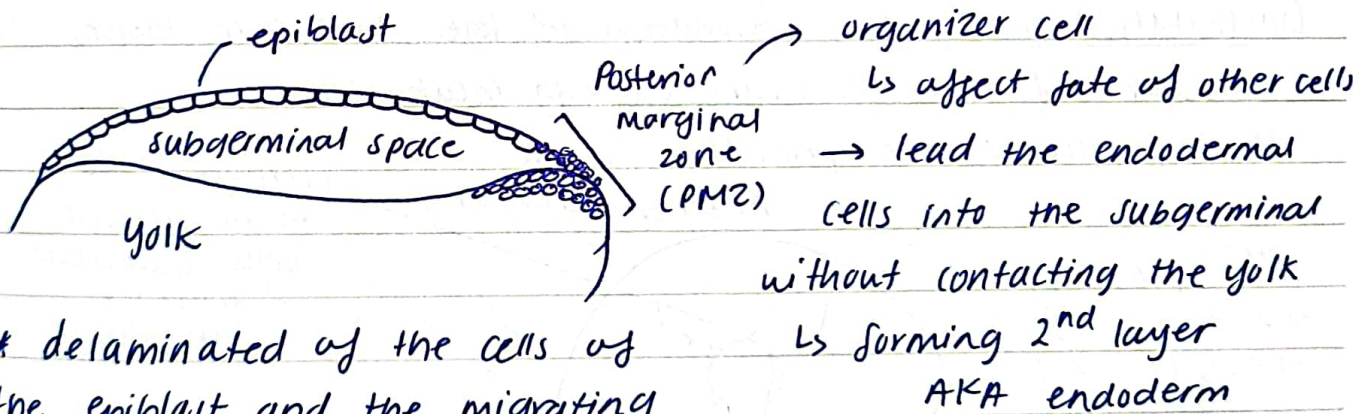 epiblast
subgerminal space
yolk
Posterior
marginal
zone
(PMZ)
→ organizer cell
↳ affect fate of other cells
→ lead the endodermal
cells into the subgerminal
without contacting the yolk
↳ forming 2nd layer
AKA endoderm
* delaminated of the cells of
the epiblast and the migrating